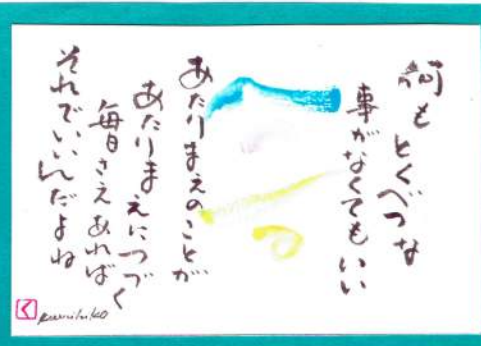 何もとくべつな
事がなくてもいい
あたりまえのことが
あたりまえにつづく
毎日さえあれば
それでいいんだよね
く
kunihiko